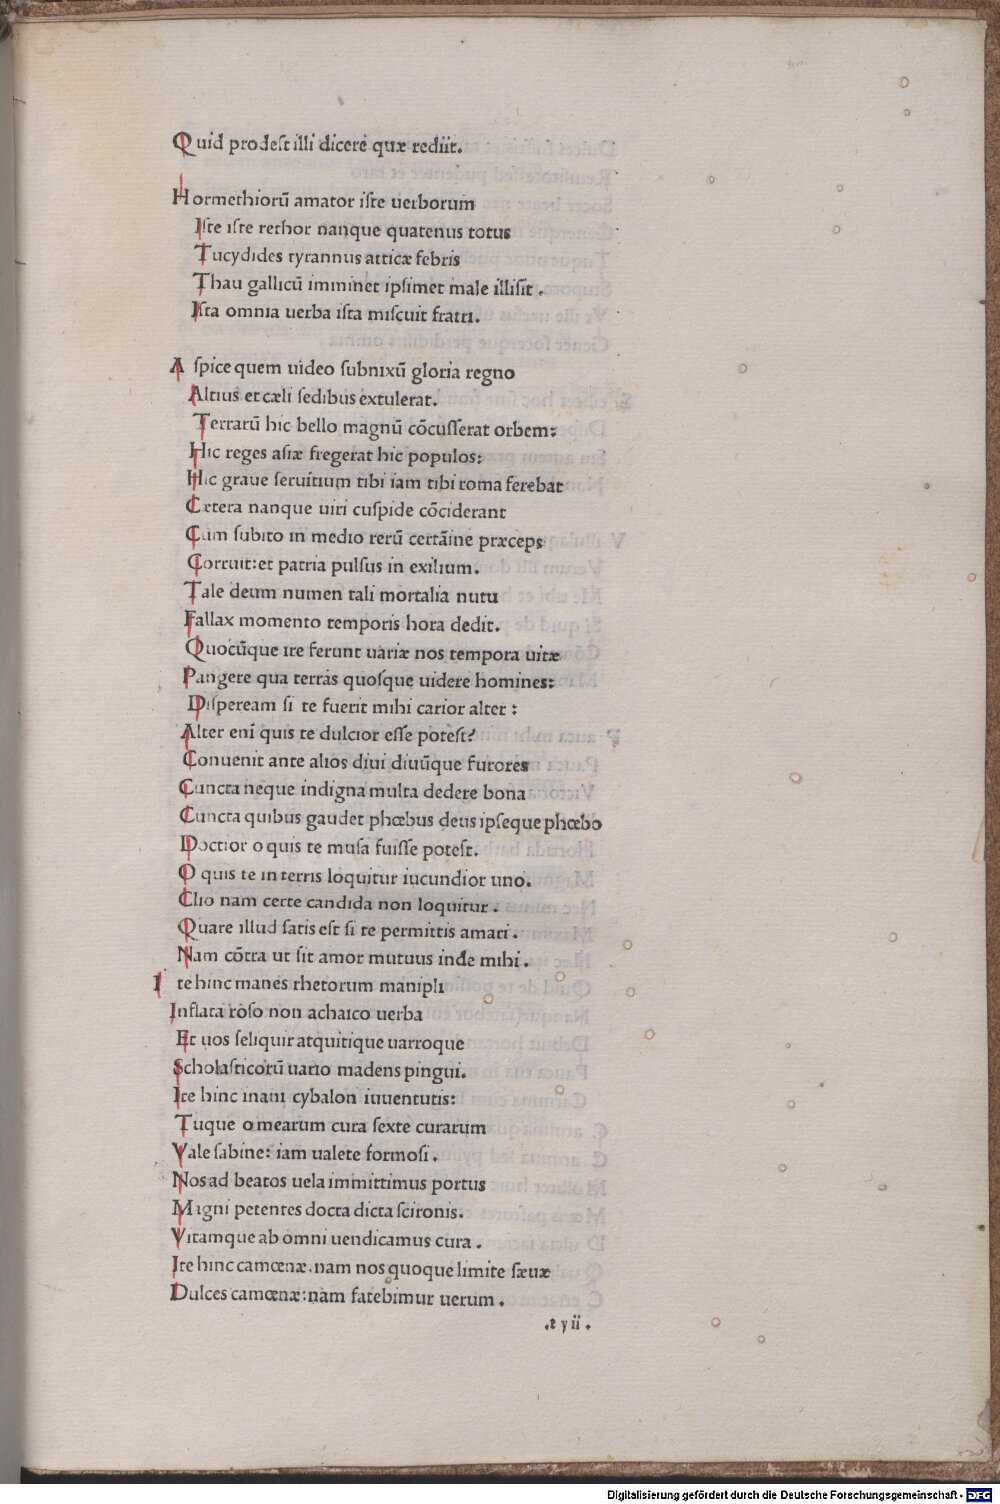 Quid prodest illi dicere quæ rediit.
Hormethiorū amator iste uerborum
Iste iste rethor nanque quatenus totus
Tucydides tyrannus atticæ febris
Thau gallicū imminet ipsimet male illisit.
Ista omnia uerba ista miscuit fratri.
Aspice quem uideo subnixū gloria regno
Altius et cæli sedibus extulerat.
Terrarū hic bello magnū cōcusserat orbem:
Hic reges asiæ fregerat hic populos:
Hic graue seruitium tibi iam tibi roma ferebat
Cætera nanque uiri cuspide cōciderant
Cum subito in medio rerū certāine præceps
Corruit: et patria pulsus in exilium.
Tale deum numen tali mortalia nutu
Fallax momento temporis hora dedit.
Quocūque ire ferunt uariæ nos tempora uitæ
Pangere qua terras quosque uidere homines:
Dispeream si te fuerit mihi carior alter:
Alter enī quis te dulcior esse potest?
Conuenit ante alios diui diuūque furores
Cuncta neque indigna multa dedere bona
Cuncta quibus gaudet phœbus deus ipseque phœbo
Doctior o quis te musa fuisse potest.
O quis te in terris loquitur iucundior uno.
Clio nam certe candida non loquitur.
Quare illud satis est si te permittis amari.
Nam cōtra ut sit amor mutuus inde mihi.
Ite hinc manes rhetorum manipli
Inflata roso non achaico uerba
Et uos seliquir atquitique uarroque
Scholasticorū uario madens pingui.
Ite hinc inani cybalon iuuentutis:
Tuque o mearum cura sexte curarum
Vale sabine: iam ualete formosi.
Nos ad beatos uela immittimus portus
Magni petentes docta dicta scironis.
Vitamque ab omni uendicamus cura.
Ite hinc camœnæ. nam nos quoque limite sæuæ
Dulces camœnæ: nam fatebimur uerum.
.z yii.
Digitalisierung gefördert durch die Deutsche Forschungsgemeinschaft - DFG